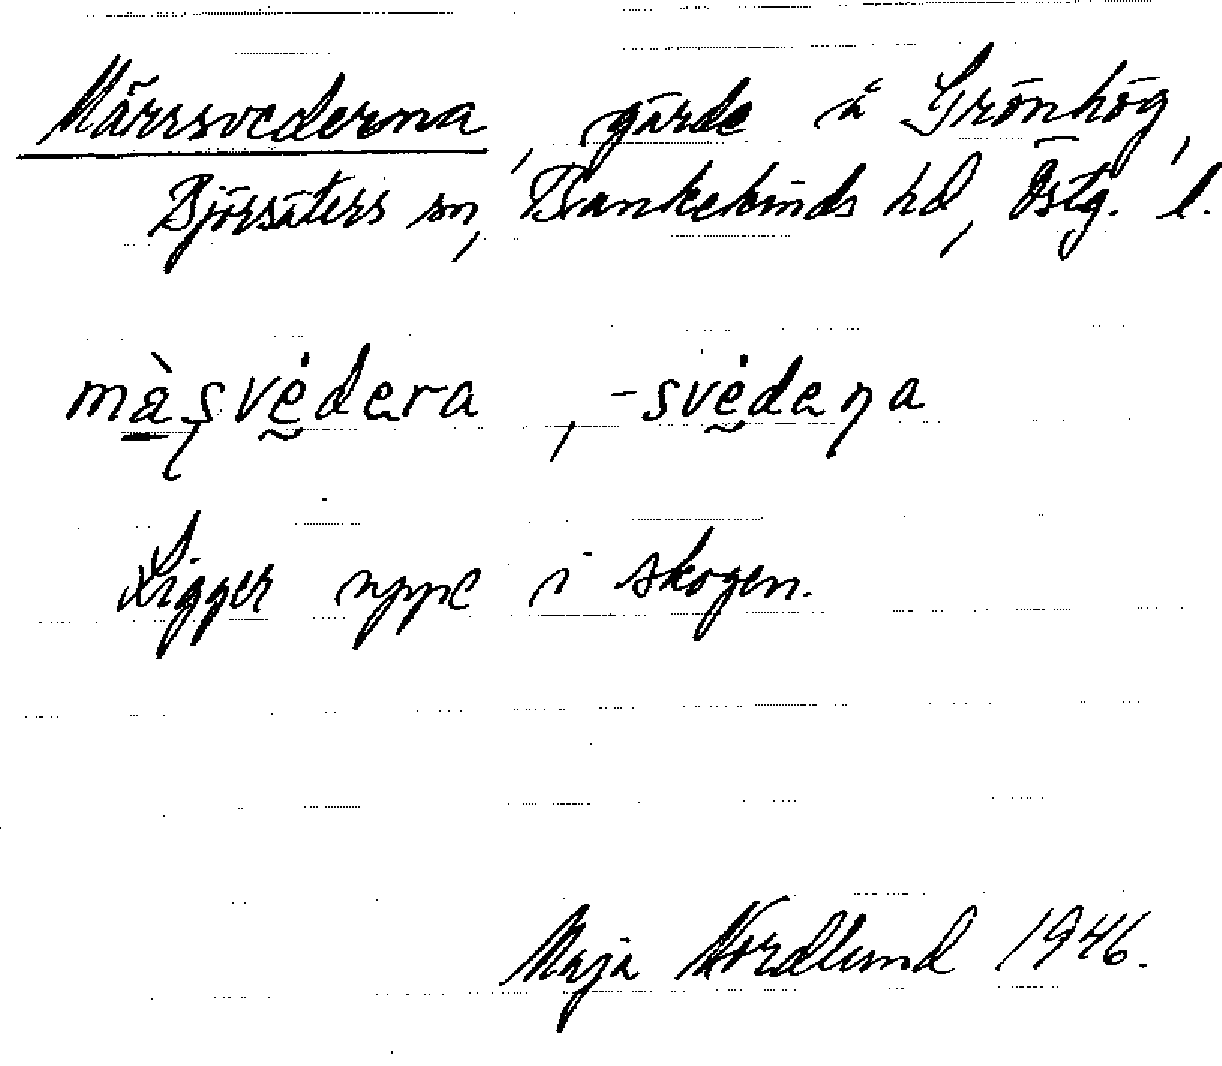 Märrsvederna, gärde å Grönhög,
Björsäters sn, Bankekinds hd, Östg. l.
màʂvède̠ra, -svèdeɳa
Ligger uppe i skogen.
Maja Nordlund 1946.